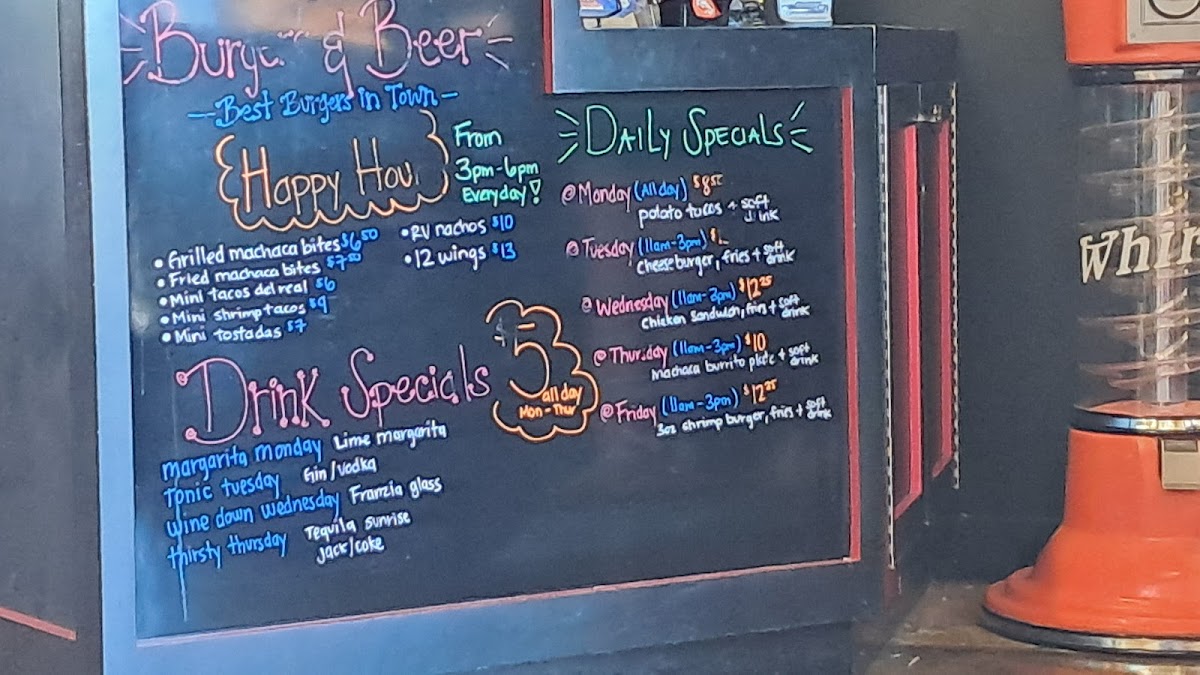 & Beer
- Best Burgers in Town -
Happy
From
3pm-6pm
Everyday!
• Grilled machaca bites $6⁵⁰
• Fried machaca bites $7⁵⁰
• Mini tacos del real $6
• Mini shrimp tacos $9
• Mini tostadas $7
• RV nachos $10
• 12 wings $13
Drink Specials
$5
all day
Mon-Thur
margarita monday Lime margarita
Tonic tuesday Gin/vodka
wine down wednesday Franzia glass
thirsty thursday Tequila sunrise
jack/coke
Daily Specials
@ Monday (All day)
potato tacos + soft drink
@ Tuesday (11am-3pm)
cheeseburger, fries + soft drink
@ Wednesday (11am-3pm) $12²⁵
Chicken Sandwich, fries + soft drink
@ Thursday (11am-3pm) $10
Machaca burrito plate + soft drink
@ Friday (11am-3pm) $12²⁵
3oz shrimp burger, fries + soft drink